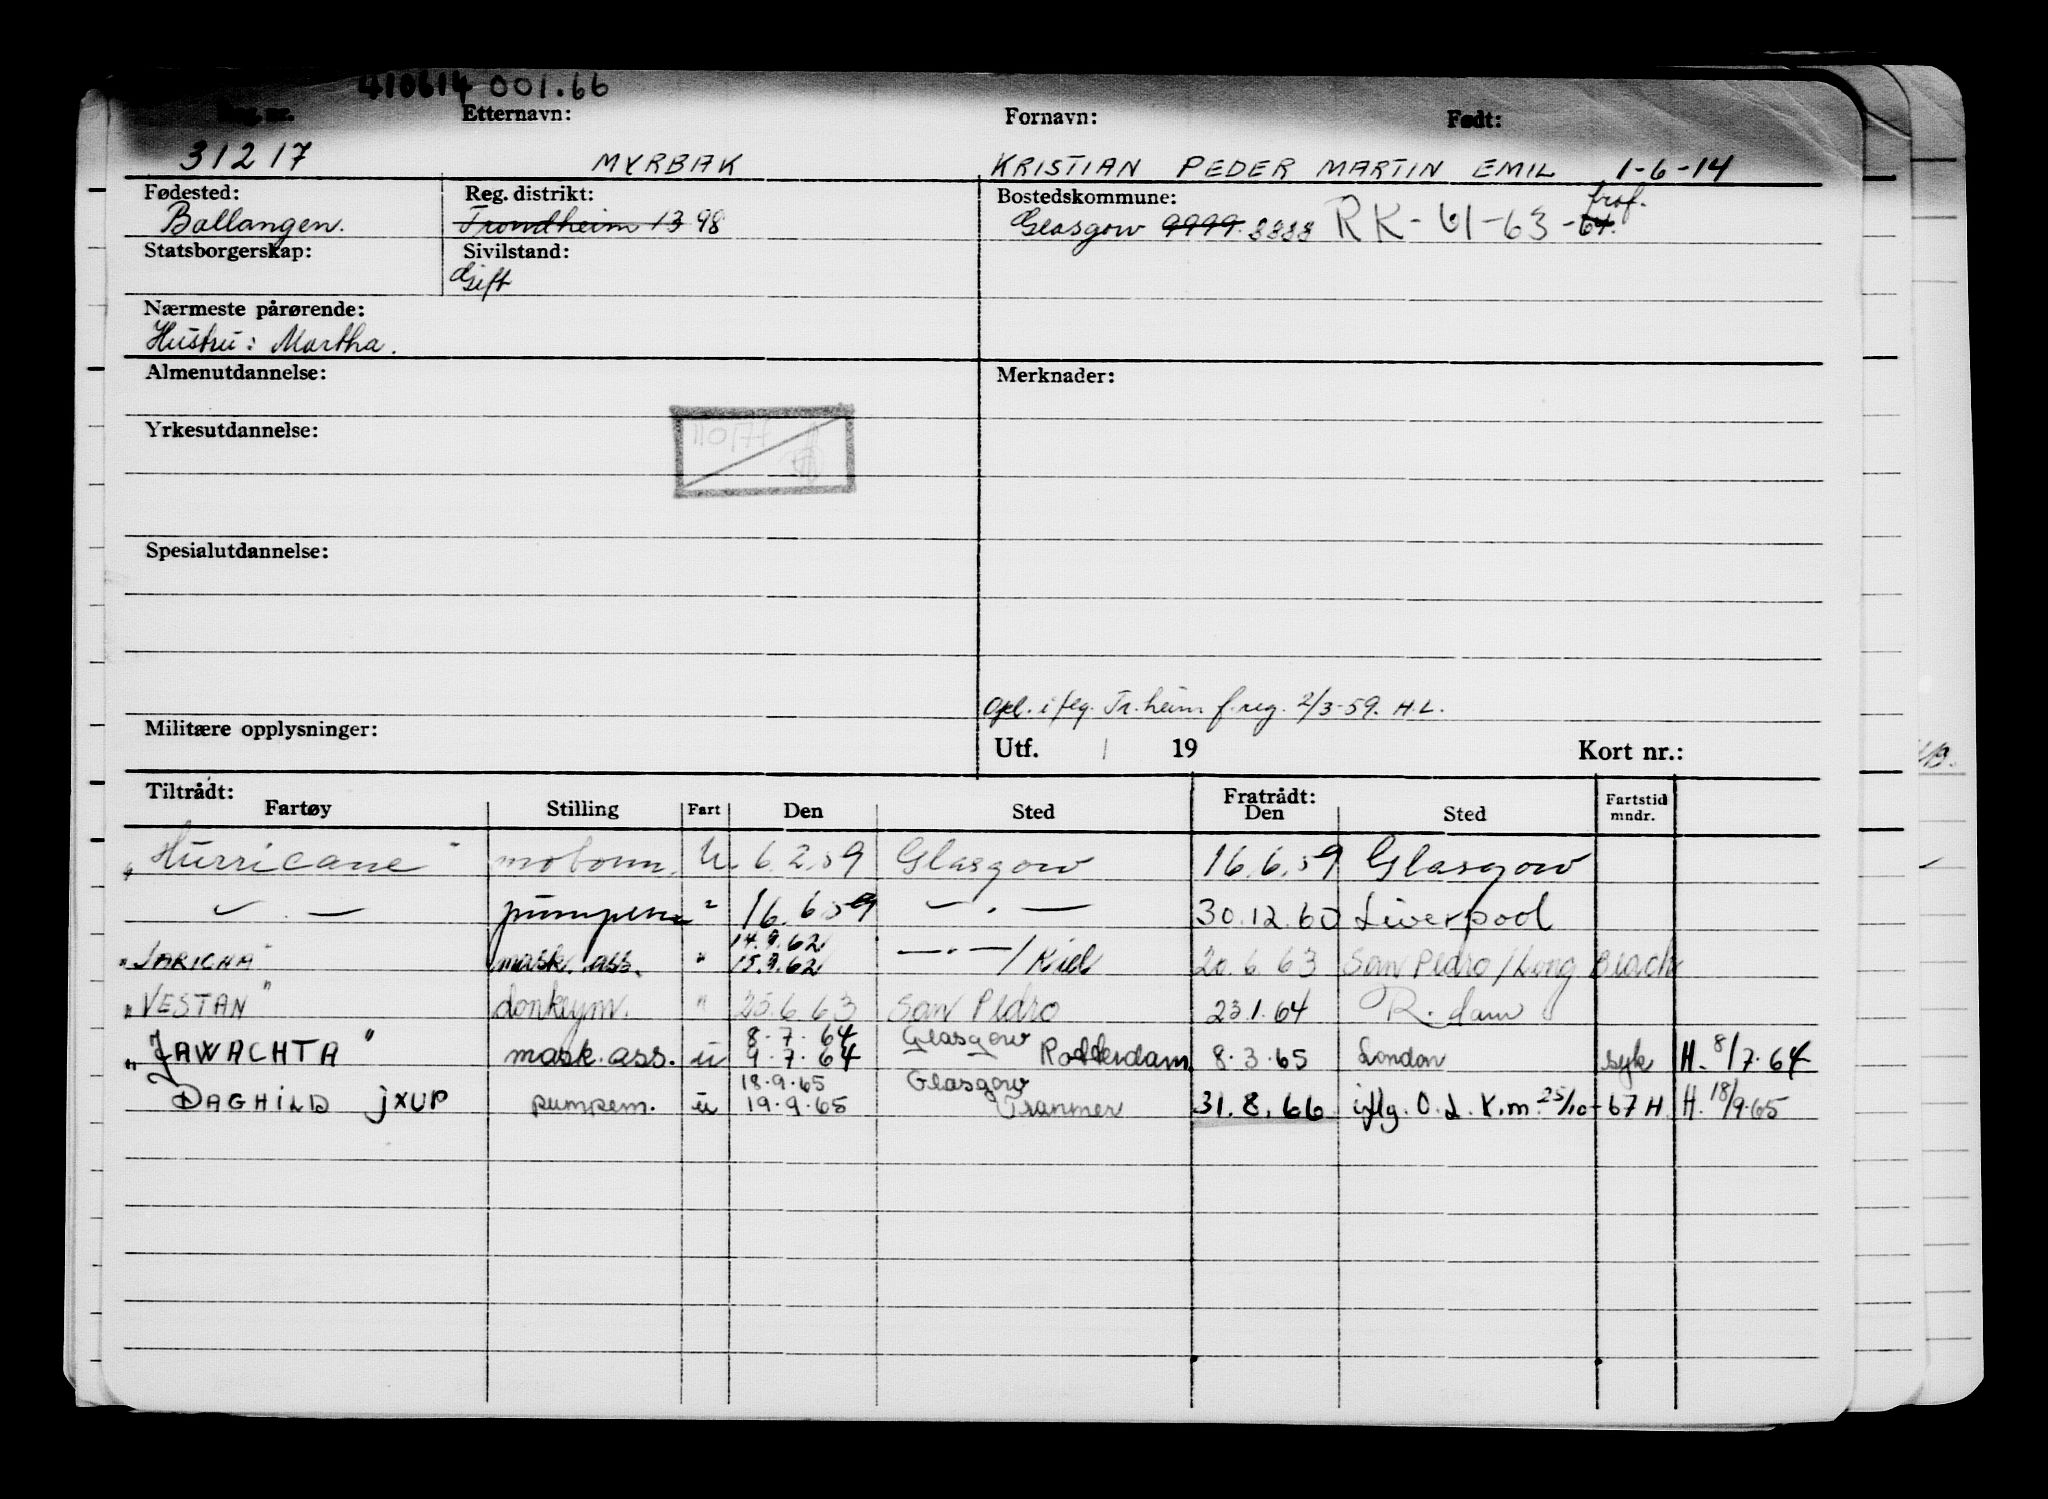 410614 001.66
Reg. nr. Etternavn: Fornavn: Født:
31217 MYRBAK KRISTIAN PEDER MARTIN EMIL 1-6-14
Fødested: Reg. distrikt: Bostedskommune:
Ballangen. Trondheim 13 98 Glasgow 9999 8888 RK-61-63-64.
Statsborgerskap: Sivilstand:
Gift
Nærmeste pårørende:
Hustru: Martha.
Almenutdannelse: Merknader:
Yrkesutdannelse:
110/77
Spesialutdannelse:
Opl. i flg. Tr.heim f.reg. 2/3-59. H.L.
Militære opplysninger: Utf. / 19 Kort nr.:
Tiltrådt: Fratrådt:
Fartøy Stilling Fart Den Sted Den Sted Fartstid mndr.
"Hurricane" motorm. U. 6.2.59 Glasgow 16.6.59 Glasgow
" — pumpem " 16.6.59 — " — 30.12.60 Liverpool
14.9.62
"JARICHA" mask. ass. " 15.9.62 — " — / Kiel 20.6.63 San Pedro / Long Beach
"VESTAN" donkeym. " 25.6.63 San Pedro 23.1.64 R.dam
8.7.64 Glasgow
"JAWACHTA" mask. ass. u 9.7.64 Rotterdam 8.3.65 London syk H. 8/7.64
18.9.65 Glasgow
DAGHILD JXUP pumpem. u 19.9.65 Tranmer 31.8.66 iflg. O.L.K.m. 25/10-67 H H. 18/9.65